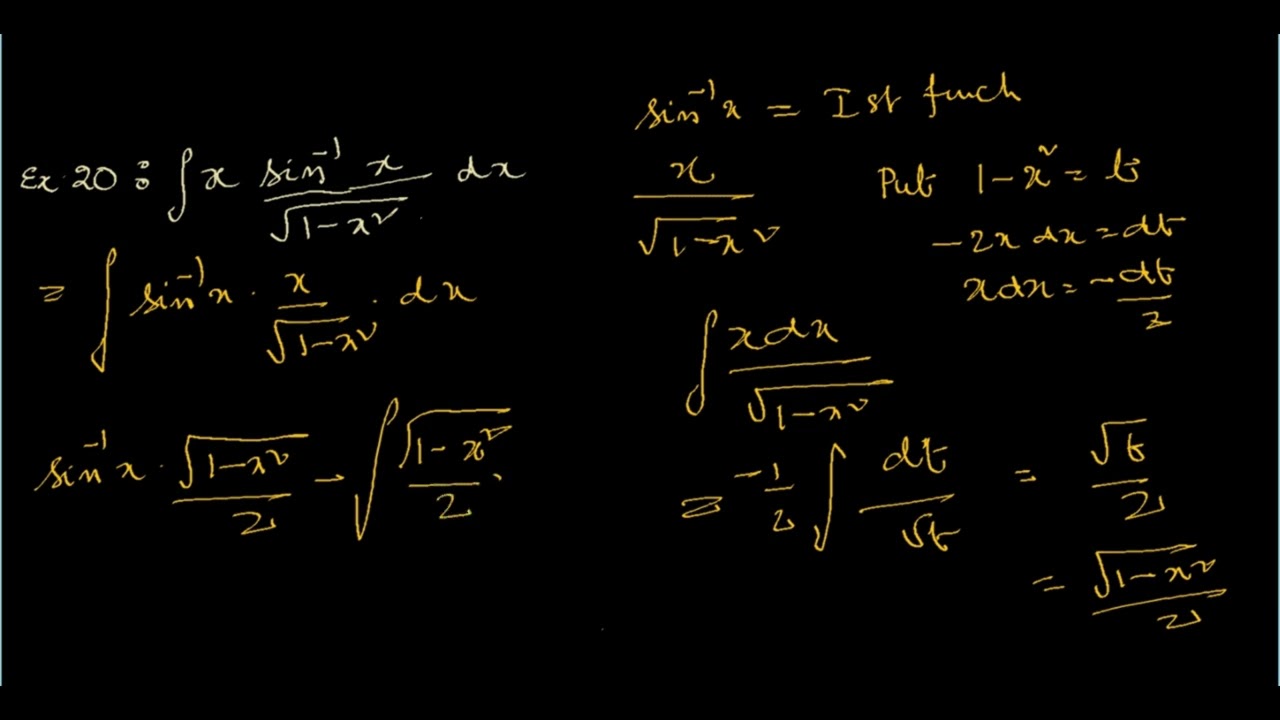 Ex. 20 : ∫ x sin⁻¹ x / √(1-x²) dx
= ∫ sin⁻¹x · x / √(1-x²) · dx
sin⁻¹x · √(1-x²) / 2 - ∫ √(1-x²) / 2 ·
sin⁻¹x = Ist funch
x / √(1-x²)
Put 1-x² = t
-2x dx = dt
x dx = -dt / 2
∫ x dx / √(1-x²)
= -1/2 ∫ dt / √t = √t / 2
= √(1-x²) / 2